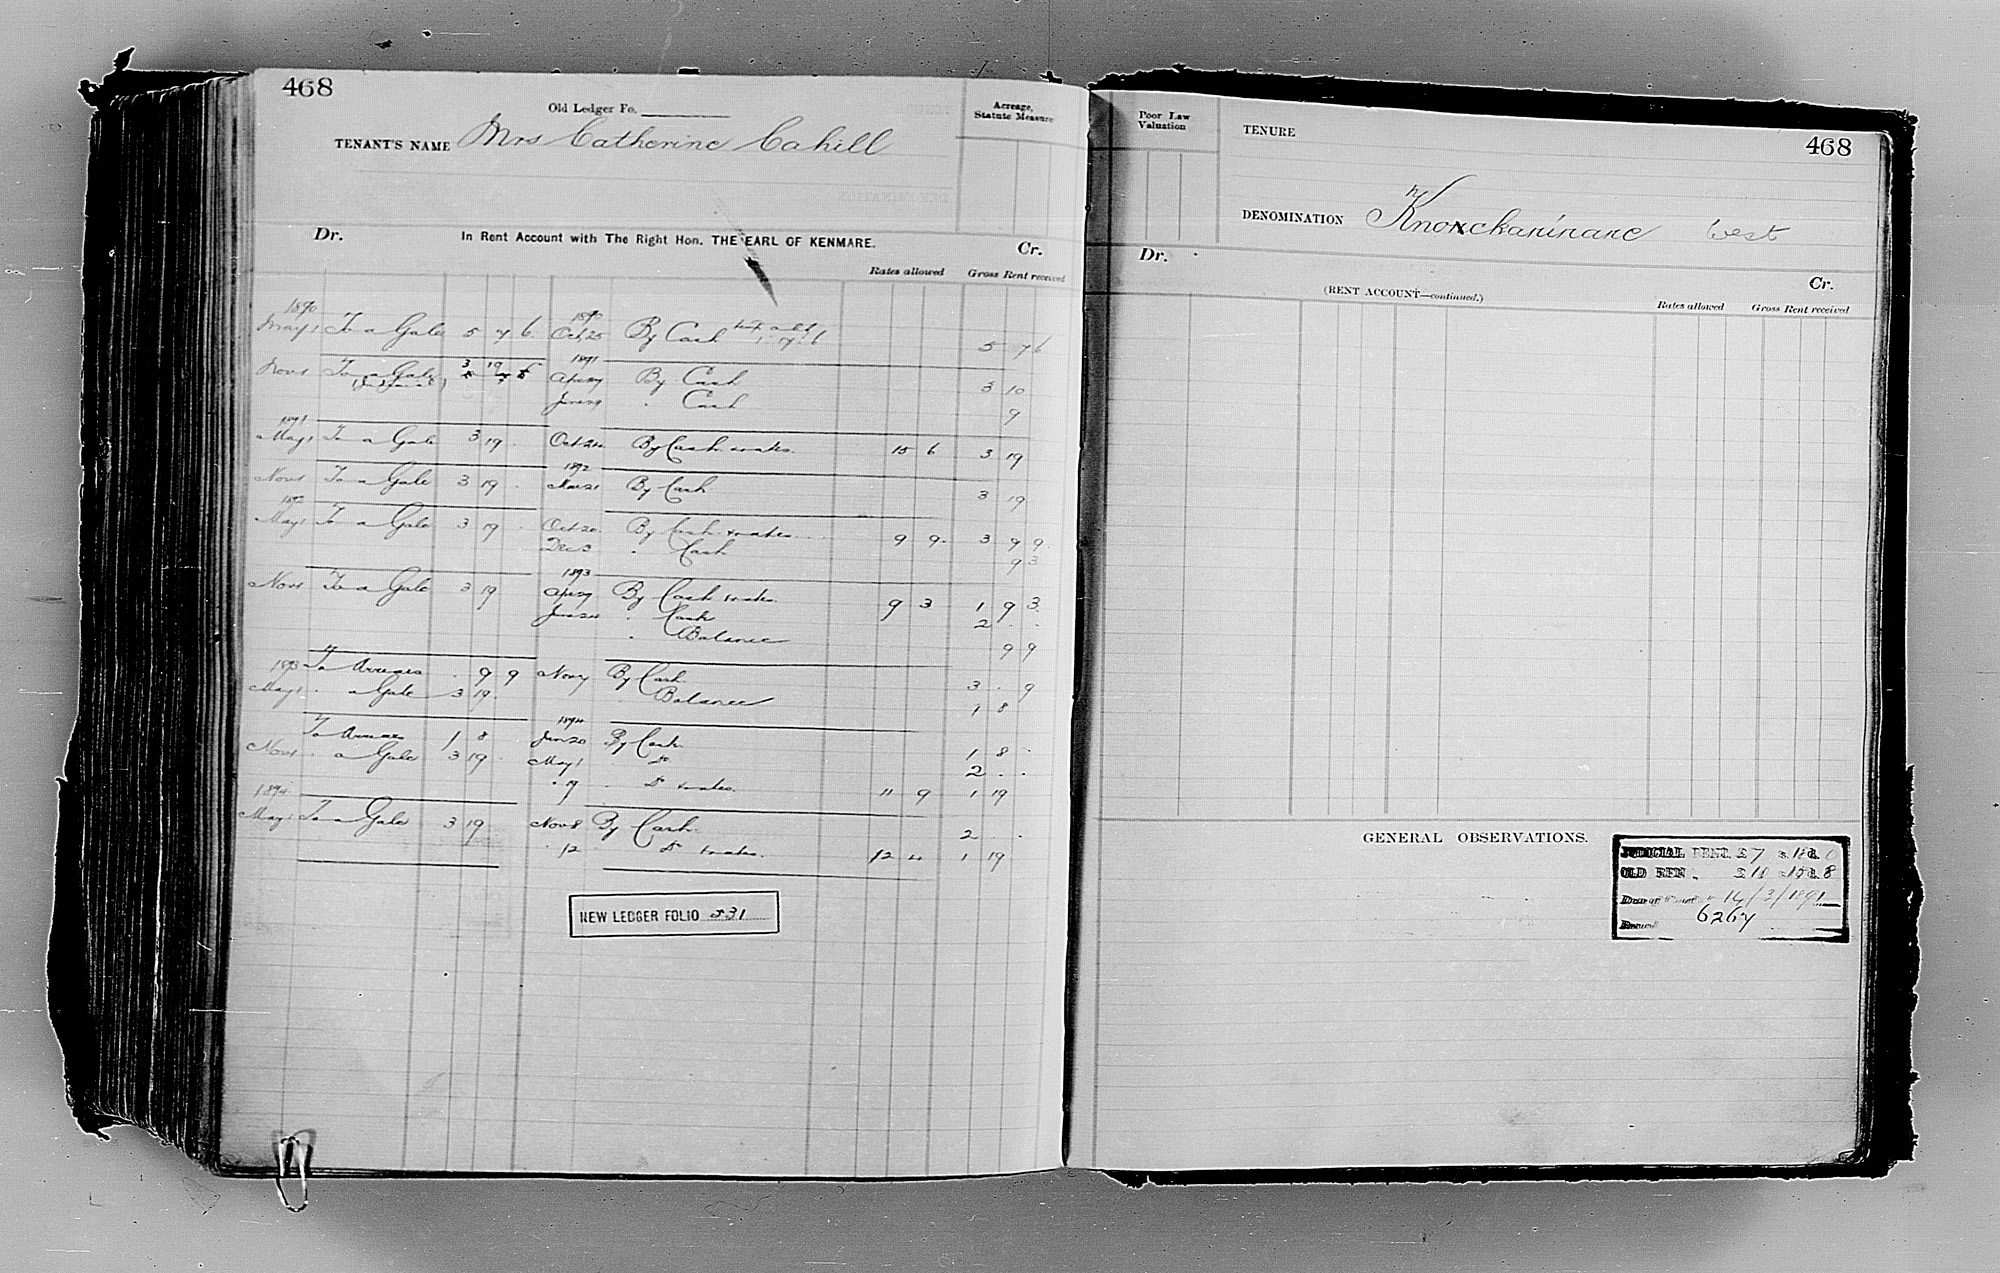 468
Old Ledger Fo.
Acreage,
Statute Measure
TENANT'S NAME Mrs Catherine Cahill
Dr. In Rent Account with The Right Hon. THE EARL OF KENMARE. Cr.
Rates allowed Gross Rent received
1890 1890
May 1 To a Gale 5 7 6 Oct 25 By Cash 1 17 6 5 7 6
1891
Nov 1 To a Gale 3 19 Apl 27 By Cash 3 10
June 29 " Cash 9
1891
May 1 To a Gale 3 19 . Oct 24 By Cash & rates 15 6 3 19
1892
Nov 1 To a Gale 3 19 . Mar 21 By Cash 3 19
1892
May 1 To a Gale 3 19 . Oct 20 By Cash & rates 9 9 3 9 9
Dec 3 " Cash 9 3
1893
Nov 1 To a Gale 3 19 Apl 27 By Cash & rates 9 3 1 9 3
June 24 " Cash 2 . .
" Balance 9 9
1893 To Arrears . 9 9 Nov 7 By Cash 3 . 9
May 1 " a Gale 3 19 . Balance 1 8
1894
To Arrears 1 8 . Jan 20 By Cash 1 8 .
Nov 1 " a Gale 3 19 . May 1 Do 2 . .
" 19 " Do & rates 11 9 1 19
1894
May 1 To a Gale 3 19 Nov 8 By Cash 2 . .
" 12 Do & rates 12 4 1 19
NEW LEDGER FOLIO 531
Poor Law
Valuation
TENURE
468
DENOMINATION Knockaninane West
Dr. Cr.
(RENT ACCOUNT—continued.)
Rates allowed Gross Rent received
GENERAL OBSERVATIONS.
JUDICIAL RENT £7 s.18 d.0
OLD RENT £10 s.15 d.8
14/3/1891
6267